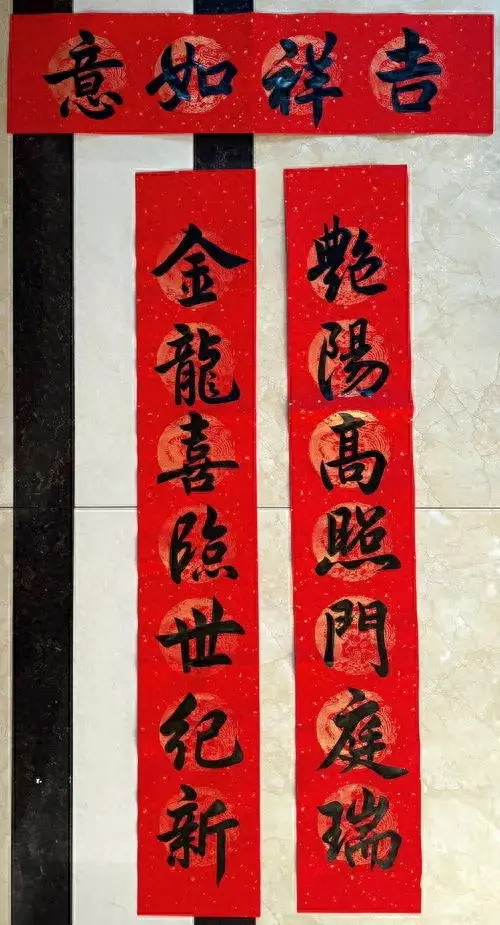 吉祥如意
艷陽高照門庭瑞
金龍喜臨世紀新